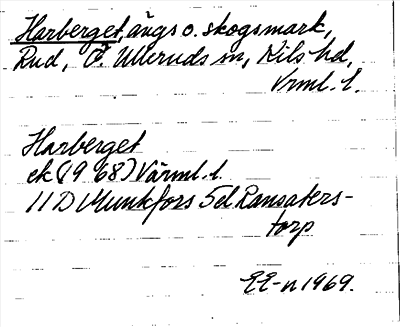 Harberget, ängs o. skogsmark,
Rud, Ö. Ulleruds sn, Kils hd,
Vrml. l.
Harberget
ek (1968) Värml. l.
11D Munkfors 5d Ransäters-
torp
EE-n 1969.